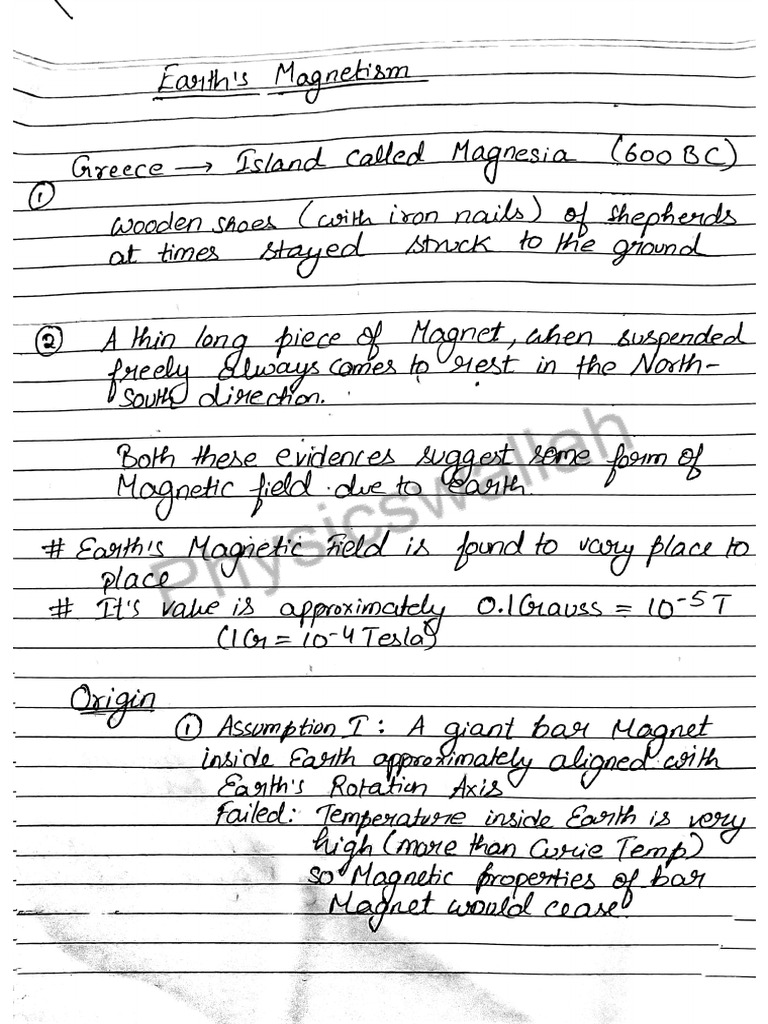 Earth's Magnetism
Greece → Island called Magnesia (600 BC)
①
Wooden shoes (with iron nails) of shepherds
at times stayed struck to the ground
② A thin long piece of Magnet, when suspended
freely always comes to rest in the North-
South direction.
Both these evidences suggest some form of
Magnetic field due to Earth.
# Earth's Magnetic Field is found to vary place to
place
# It's value is approximately 0.1 Gauss = 10⁻⁵ T
(1G = 10⁻⁴ Tesla)
Origin
① Assumption I : A giant bar Magnet
inside Earth approximately aligned with
Earth's Rotation Axis
Failed: Temperature inside Earth is very
high (more than Curie Temp)
so Magnetic properties of bar
Magnet would cease
Physicswallah